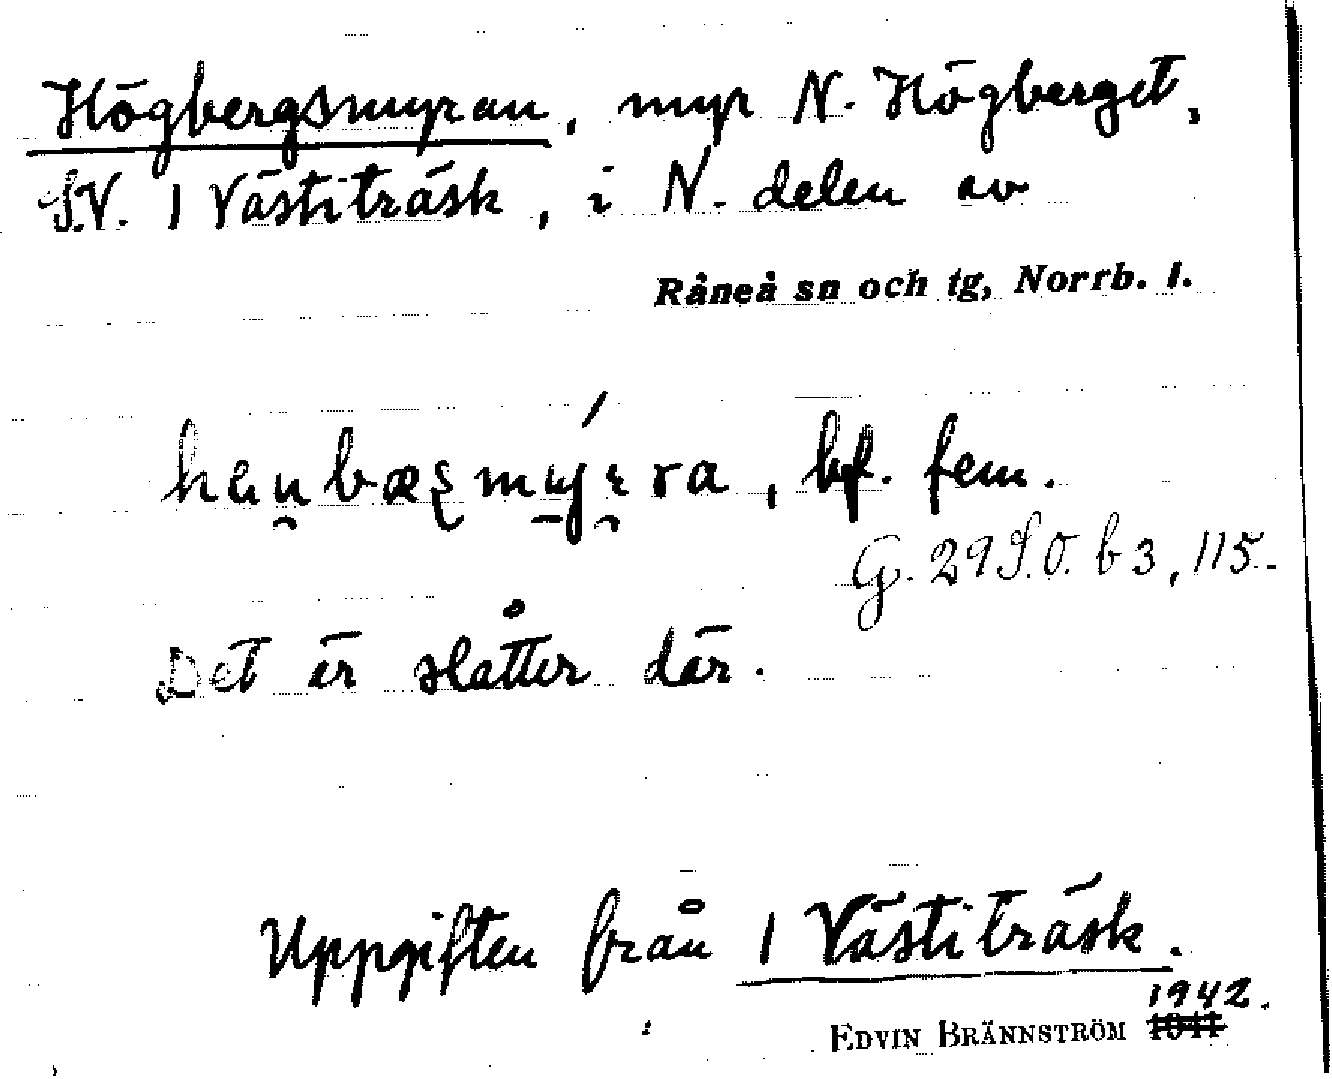 Högbergsmyran, myr N. Högberget,
S.V. 1 Västiträsk, i N. delen av
Råneå sn och tg, Norrb. l.
bf. fem.
G. 29 S.O. b 3, 115.
Det är slåtter där.
Uppgiften från 1 Västiträsk.
1942.
EDVIN BRÄNNSTRÖM 1941